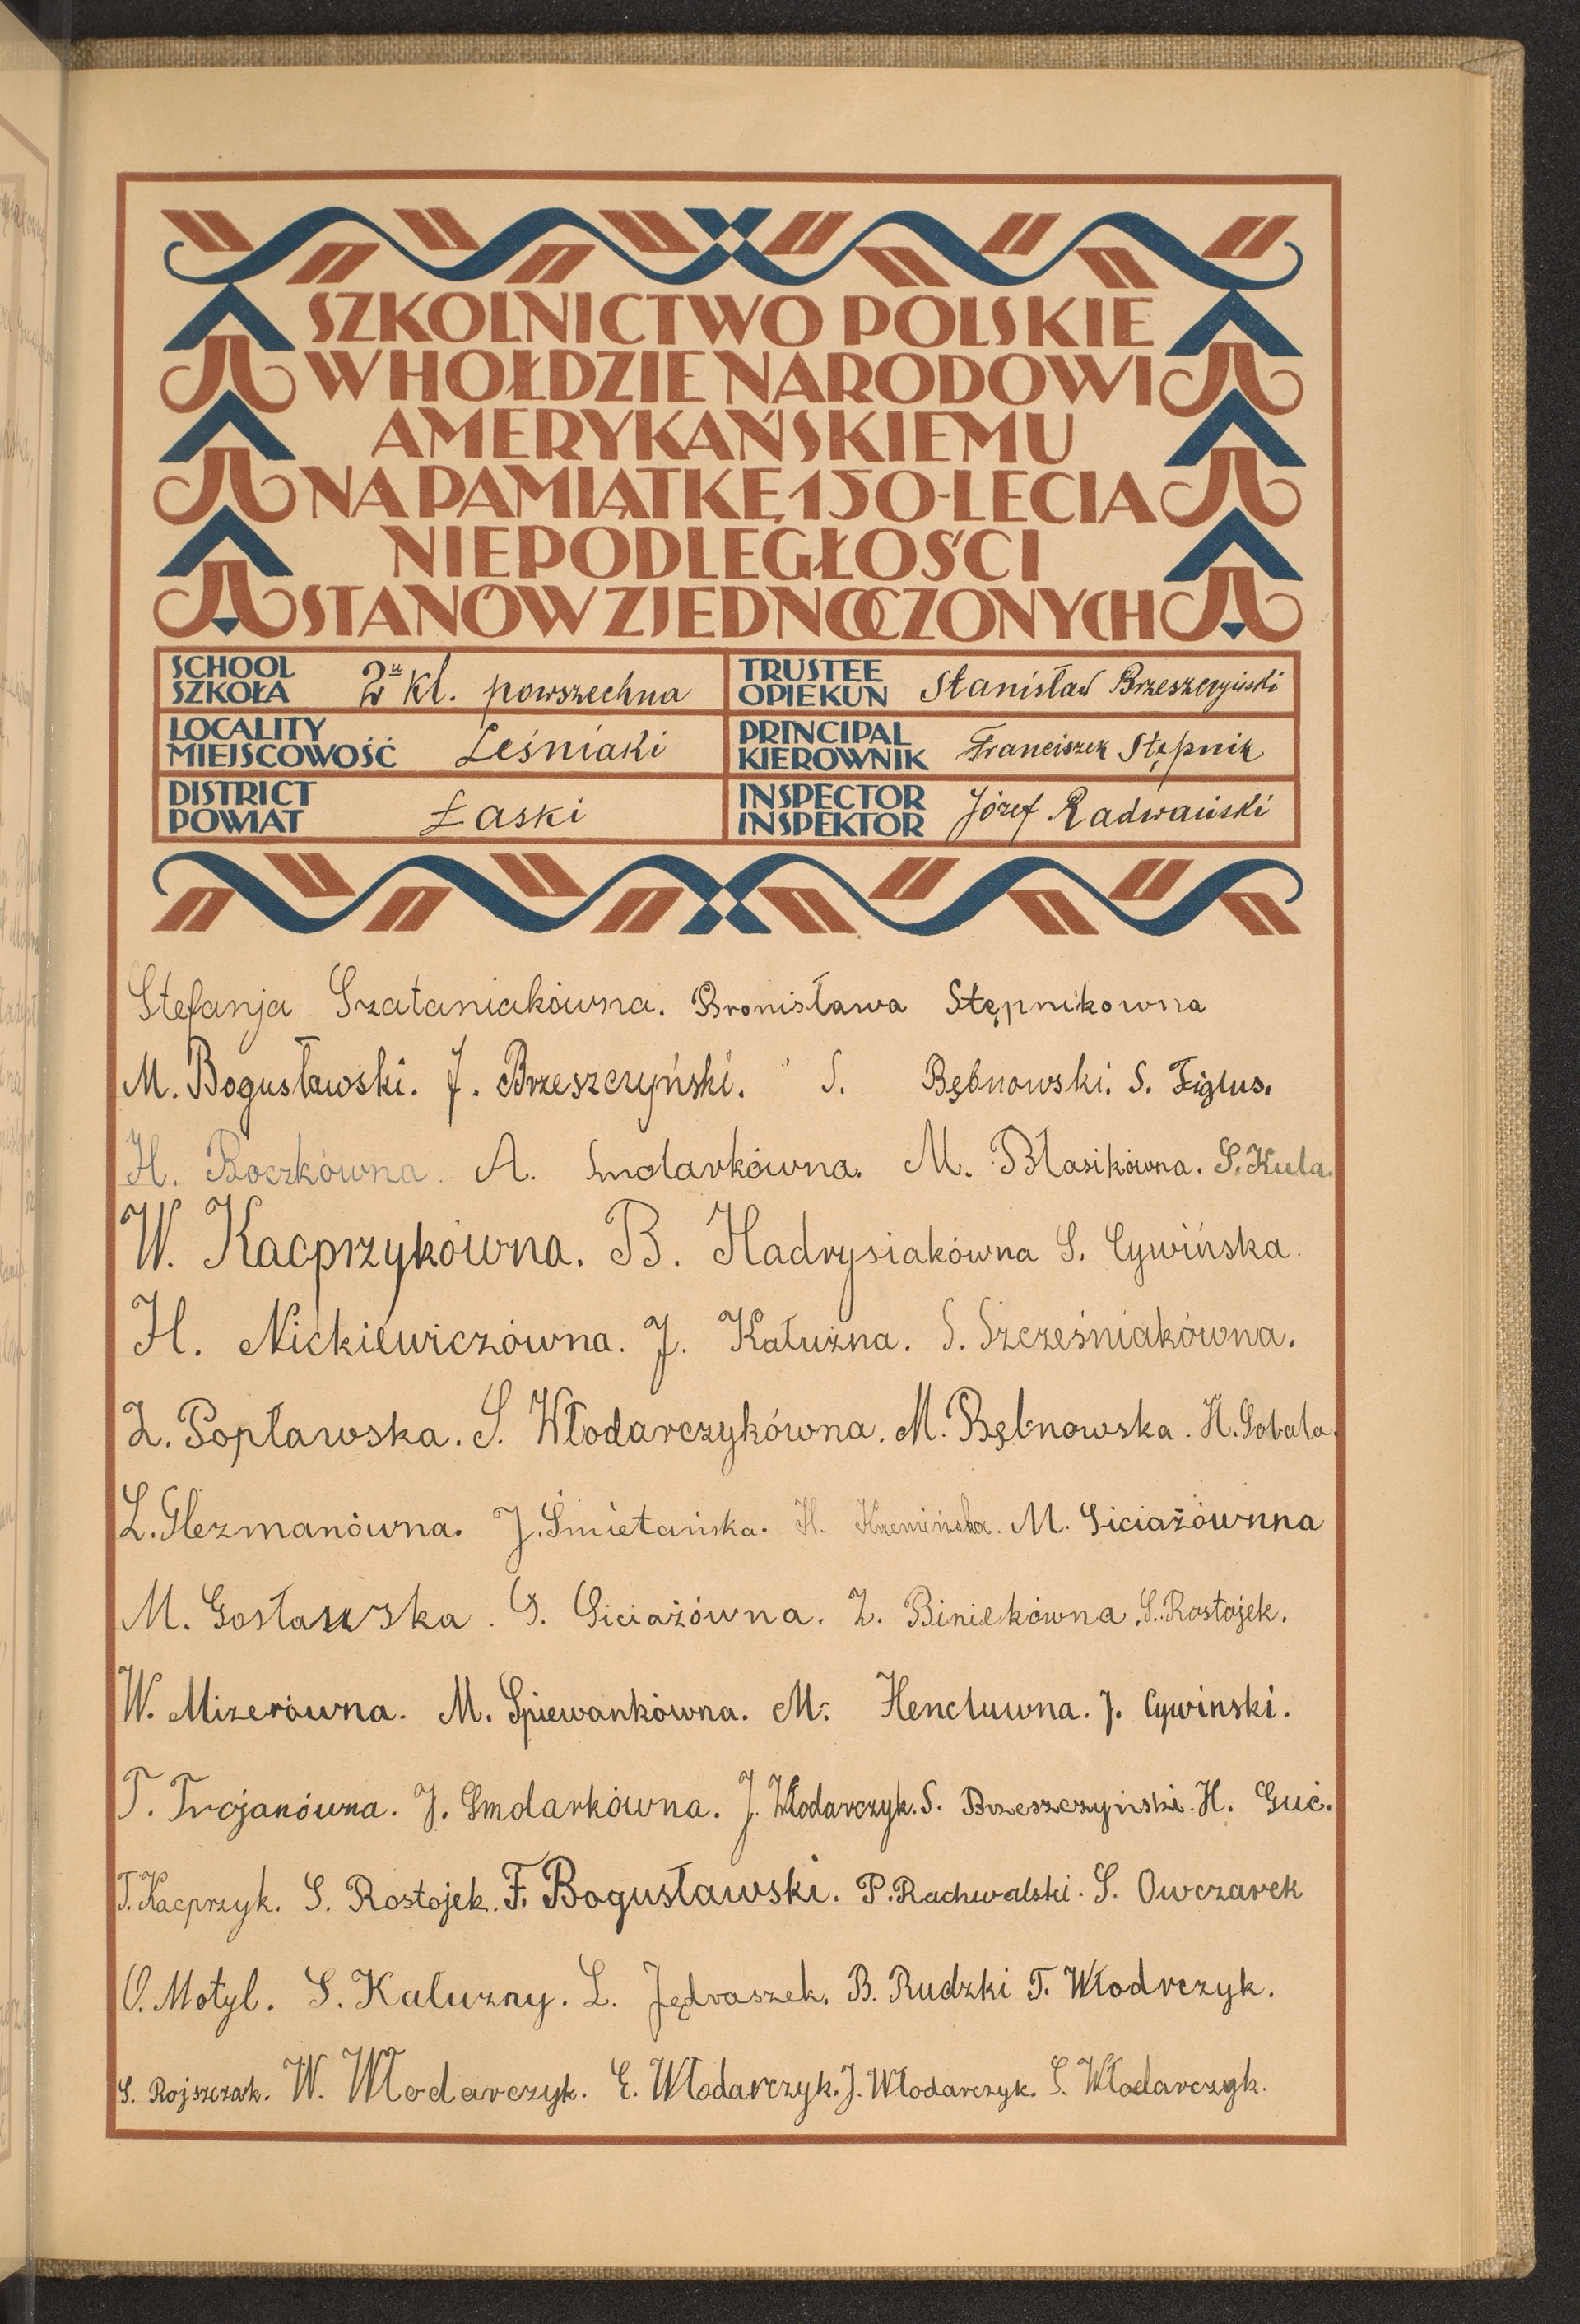 SZKOLNICTWO POLSKIE
W HOŁDZIE NARODOWI
AMERYKAŃSKIEMU
NA PAMIĄTKĘ 150-LECIA
NIEPODLEGŁOŚCI
STANÓW ZJEDNOCZONYCH
SCHOOL
SZKOŁA 2u kl. powszechna
TRUSTEE
OPIEKUN Stanisław Brzeszczyński
LOCALITY
MIEJSCOWOŚĆ Leśniaki
PRINCIPAL
KIEROWNIK Franciszek Stępnik
DISTRICT
POWIAT Łaski
INSPECTOR
INSPEKTOR Józef Radwański
Stefanja Szataniakówna. Bronisława Stępnikowna
M. Bogusławski. J. Brzeszczyński. S. Bębnowski. S. Figlus.
H. Boczkówna. A. Smolarkówna. M. Błasikówna. S. Kula.
W. Kacprzykówna. B. Hadrysiakówna S. Cywińska.
H. Nickiewiczówna. J. Kałużna. S. Szcześniakówna.
Z. Popławska. S. Włodarczykówna. M. Bębnowska. H. Sobala.
L. Glezmanówna. J. Śmietańska. H. Krzemińska. M. Siciażównna
M. Gosławska. G. Siciażówna. Z. Biniekówna. S. Rostojek.
W. Mizerówna. M. Spiewankówna. M. Hencluwna. J. Cywinski.
T. Trojanówna. J. Smolarkówna. J. Włodarczyk. S. Brzeszczyński. H. Guć.
T. Kacprzyk. S. Rostojek. F. Bogusławski. P. Rachwalski. S. Owczarek
O. Motyl. S. Kaluzny. L. Jędraszek. B. Rudzki T. Włodrczyk.
S. Rojszczak. W. Włodarczyk. E. Włodarczyk. J. Włodarczyk. S. Włodarczyk.